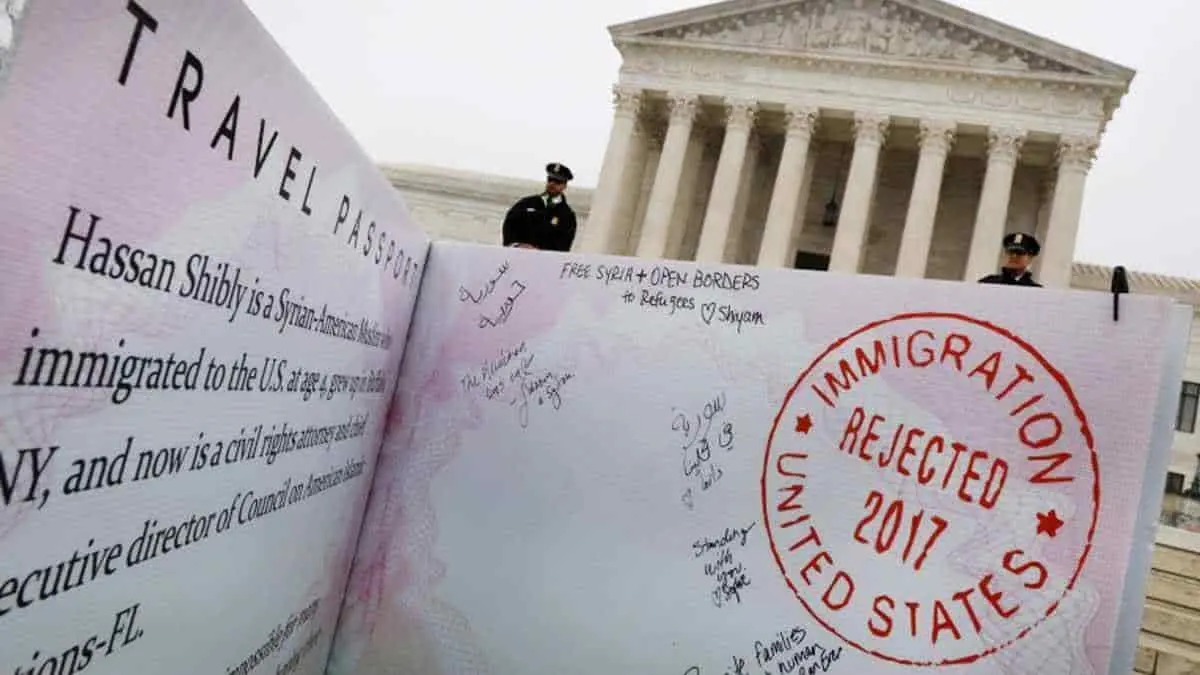 TRAVEL PASSPORT
Hassan Shibly is a Syrian-American Muslim who
immigrated to the U.S. at age 4, grew up in Buffalo
NY, and now is a civil rights attorney and chief
ecutive director of Council on American Islamic
tions-FL.
impossible for many
سورية
حرية
FREE SYRIA + OPEN BORDERS
to Refugees ♡ Shyam
The
سورية
♡
Standing
with
you.
♡
IMMIGRATION
REJECTED
2017
UNITED STATES
families
human